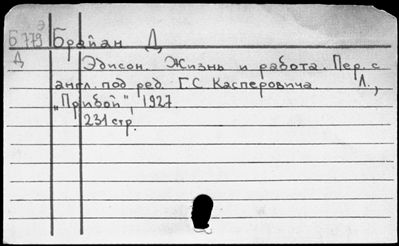 Э
Б 779 Брайан Д
Д Эдисон. Жизнь и работа. Пер. с
англ. под ред. Г.С. Касперовича. Л.,
„Прибой", 1927.
231 стр.